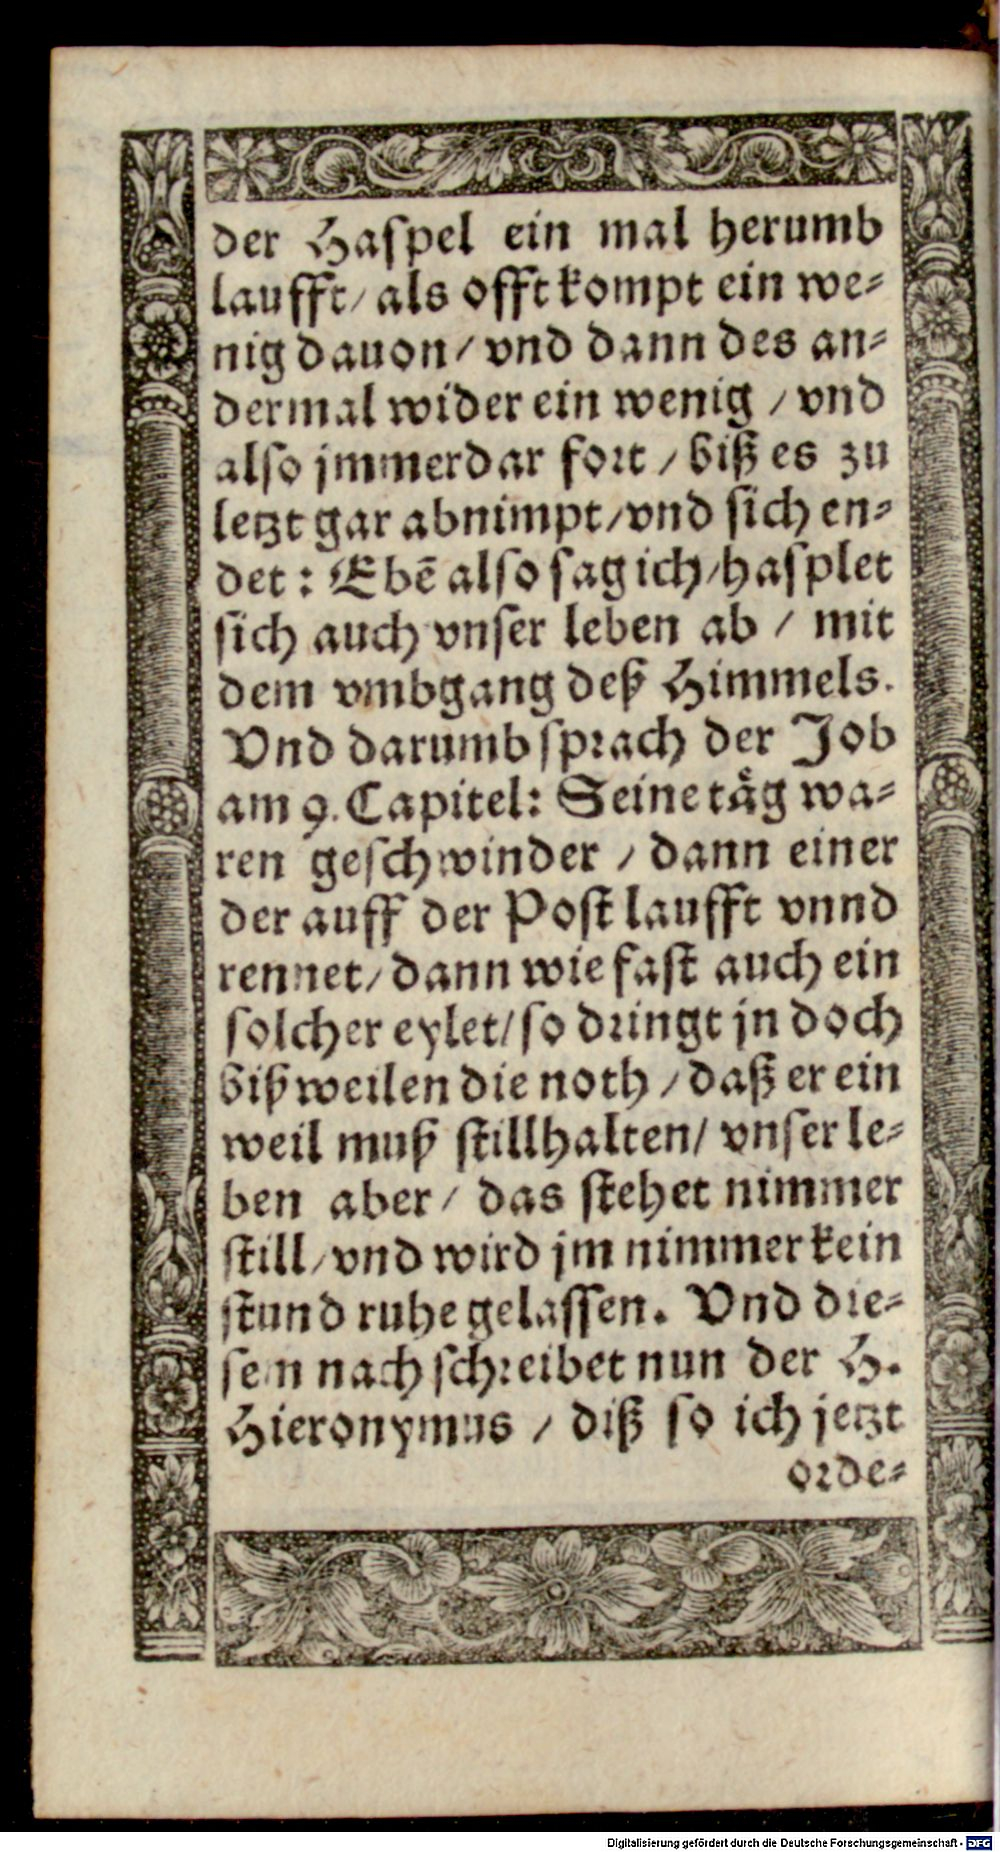 der Haspel ein mal herumb
laufft/ als offt kompt ein we⸗
nig dauon/ vnd dann des an⸗
dermal wider ein wenig / vnd
also jmmerdar fort / biß es zu
letzt gar abnimpt/vnd sich en⸗
det : Ebē also sag ich/hasplet
sich auch vnser leben ab / mit
dem vmbgang deß Himmels.
Vnd darumb sprach der Job
am 9. Capitel: Seine taͤg wa⸗
ren geschwinder / dann einer
der auff der Post laufft vnnd
rennet/ dann wie fast auch ein
solcher eylet/ so dringt jn doch
bißweilen die noth / daß er ein
weil muß stillhalten/ vnser le⸗
ben aber/ das stehet nimmer
still/vnd wird jm nimmer kein
stund ruhe gelassen. Vnd die⸗
sem nach schreibet nun der H.
Hieronymus / diß so ich jetzt
orde⸗
Digitalisierung gefördert durch die Deutsche Forschungsgemeinschaft - DFG